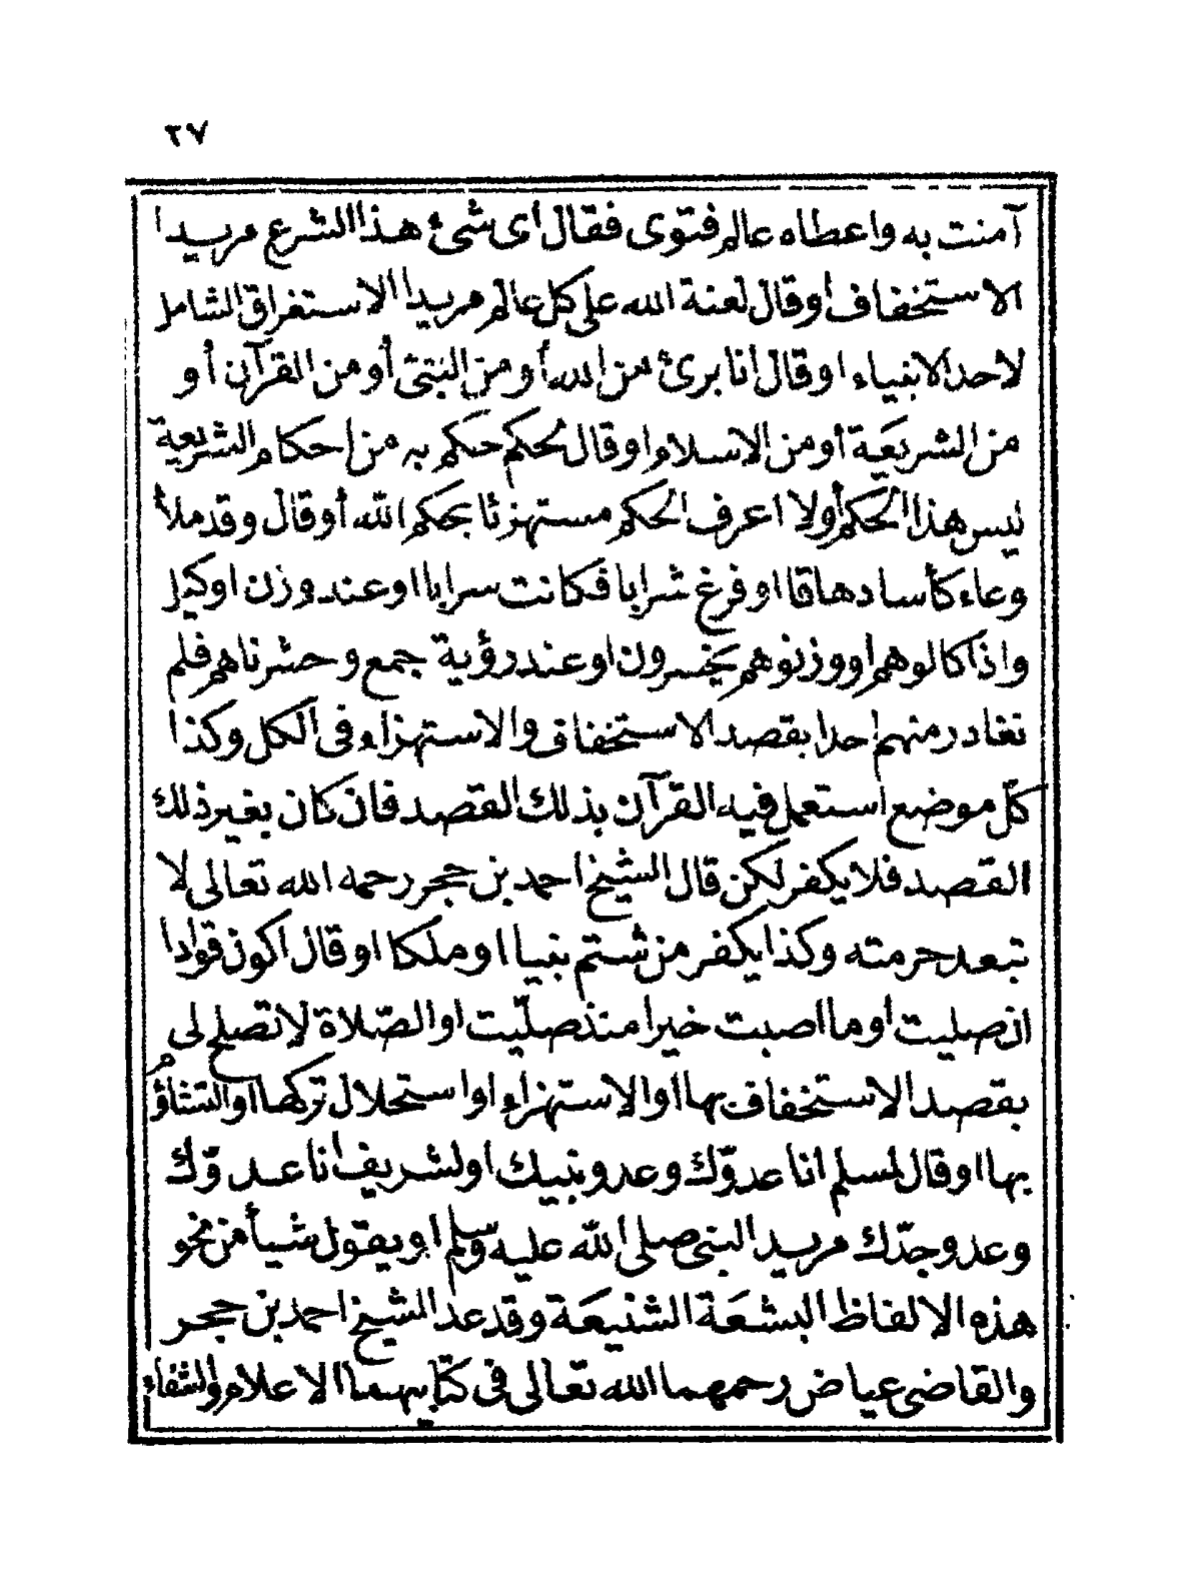 ٢٧
آمنت به واعطاه عالم فتوى فقال أى شئ هذا الشرع مريدا
الاستخفاف اوقال لعنة الله على كل عالم مريدا الاستغراق الشامل
لأحد الانبياء اوقال انا برئ من الله أو من النبيّ أو من القرآن أو
من الشريعَة أو من الاسلام اوقال لحكم حكم به من احكام الشريعة
ليس هذا الحكم أولا اعرف الحكم مستهزئا بحكم الله أوقال وقد ملأ
وعاء كأسا دهاقا اوفرغ شرابا فكانت سرابا اوعند وزن اوكيل
واذا كالوهم اووزنوهم يخسرون اوعند رؤية جمع وحشرناهم فلم
نغادر منهم احدا بقصد الاستخفاف والاستهزاء فى الكل وكذا
كلّ موضع استعمل فيه القرآن بذلك القصد فان كان بغير ذلك
القصد فلا يكفر لكن قال الشيخ احمد بن حجر رحمه الله تعالى لا
تبعد حرمته وكذا يكفر من شتم نبيا اوملكا اوقال اكون قوادا
ان صليت اوما اصبت خيرا منذ صلّيت اوالصّلاة لا تصلح لى
بقصد الاستخفاف بها أوالاستهزاء اواستحلال تركها اوالتشاؤم
بها اوقال لمسلم انا عدوّك وعدو نبيك اولشريف انا عدوّك
وعدو جدّك مريد النبى صلى الله عليه وسلم اويقول شيأ من نحو
هذه الالفاظ البشعَة الشنيعَة وقد عد الشيخ احمد بن حجر
والقاضى عياض رحمهما الله تعالى فى كتابيهما الاعلام والشفاء